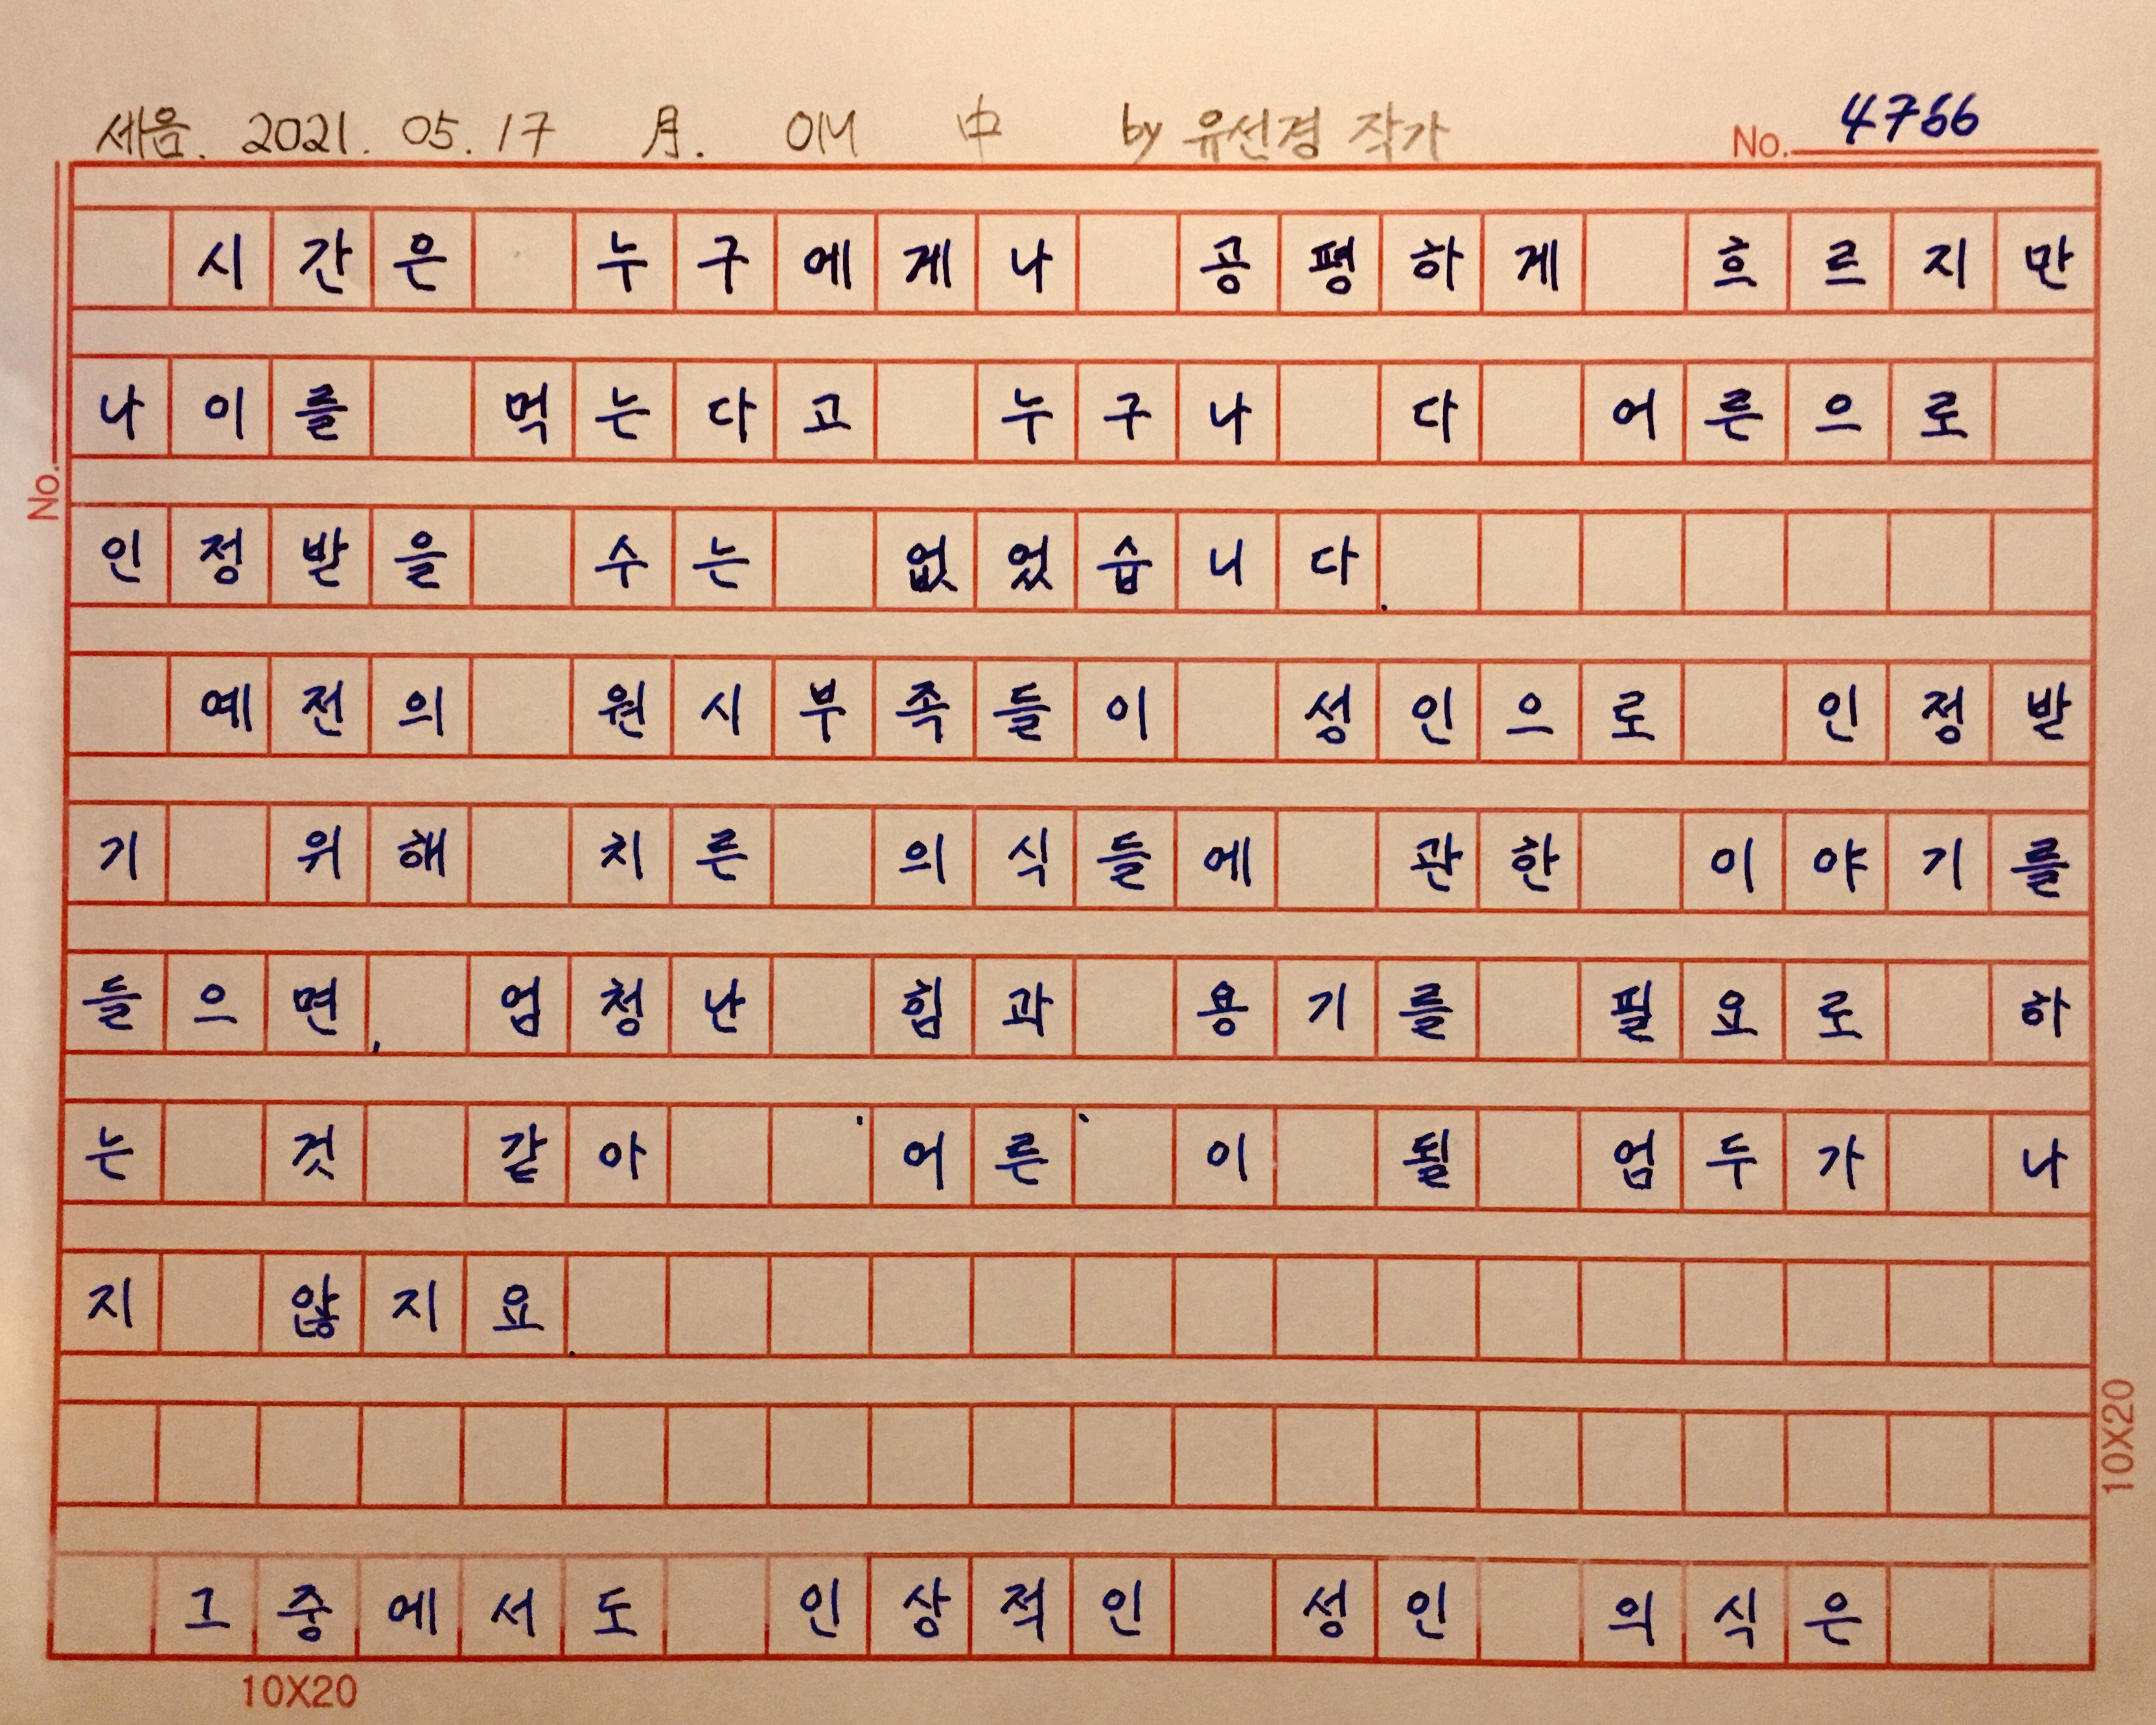 세음. 2021. 05. 17 月. OM 中 by 유선경 작가
No. 4766
시간은 누구에게나 공평하게 흐르지만
나이를 먹는다고 누구나 다 어른으로
No.
인정받을 수는 없었습니다.
예전의 원시부족들이 성인으로 인정받
기 위해 치른 의식들에 관한 이야기를
들으면, 엄청난 힘과 용기를 필요로 하
는 것 같아 '어른'이 될 엄두가 나
지 않지요.
그중에서도 인상적인 성인 의식은
10X20
10X20